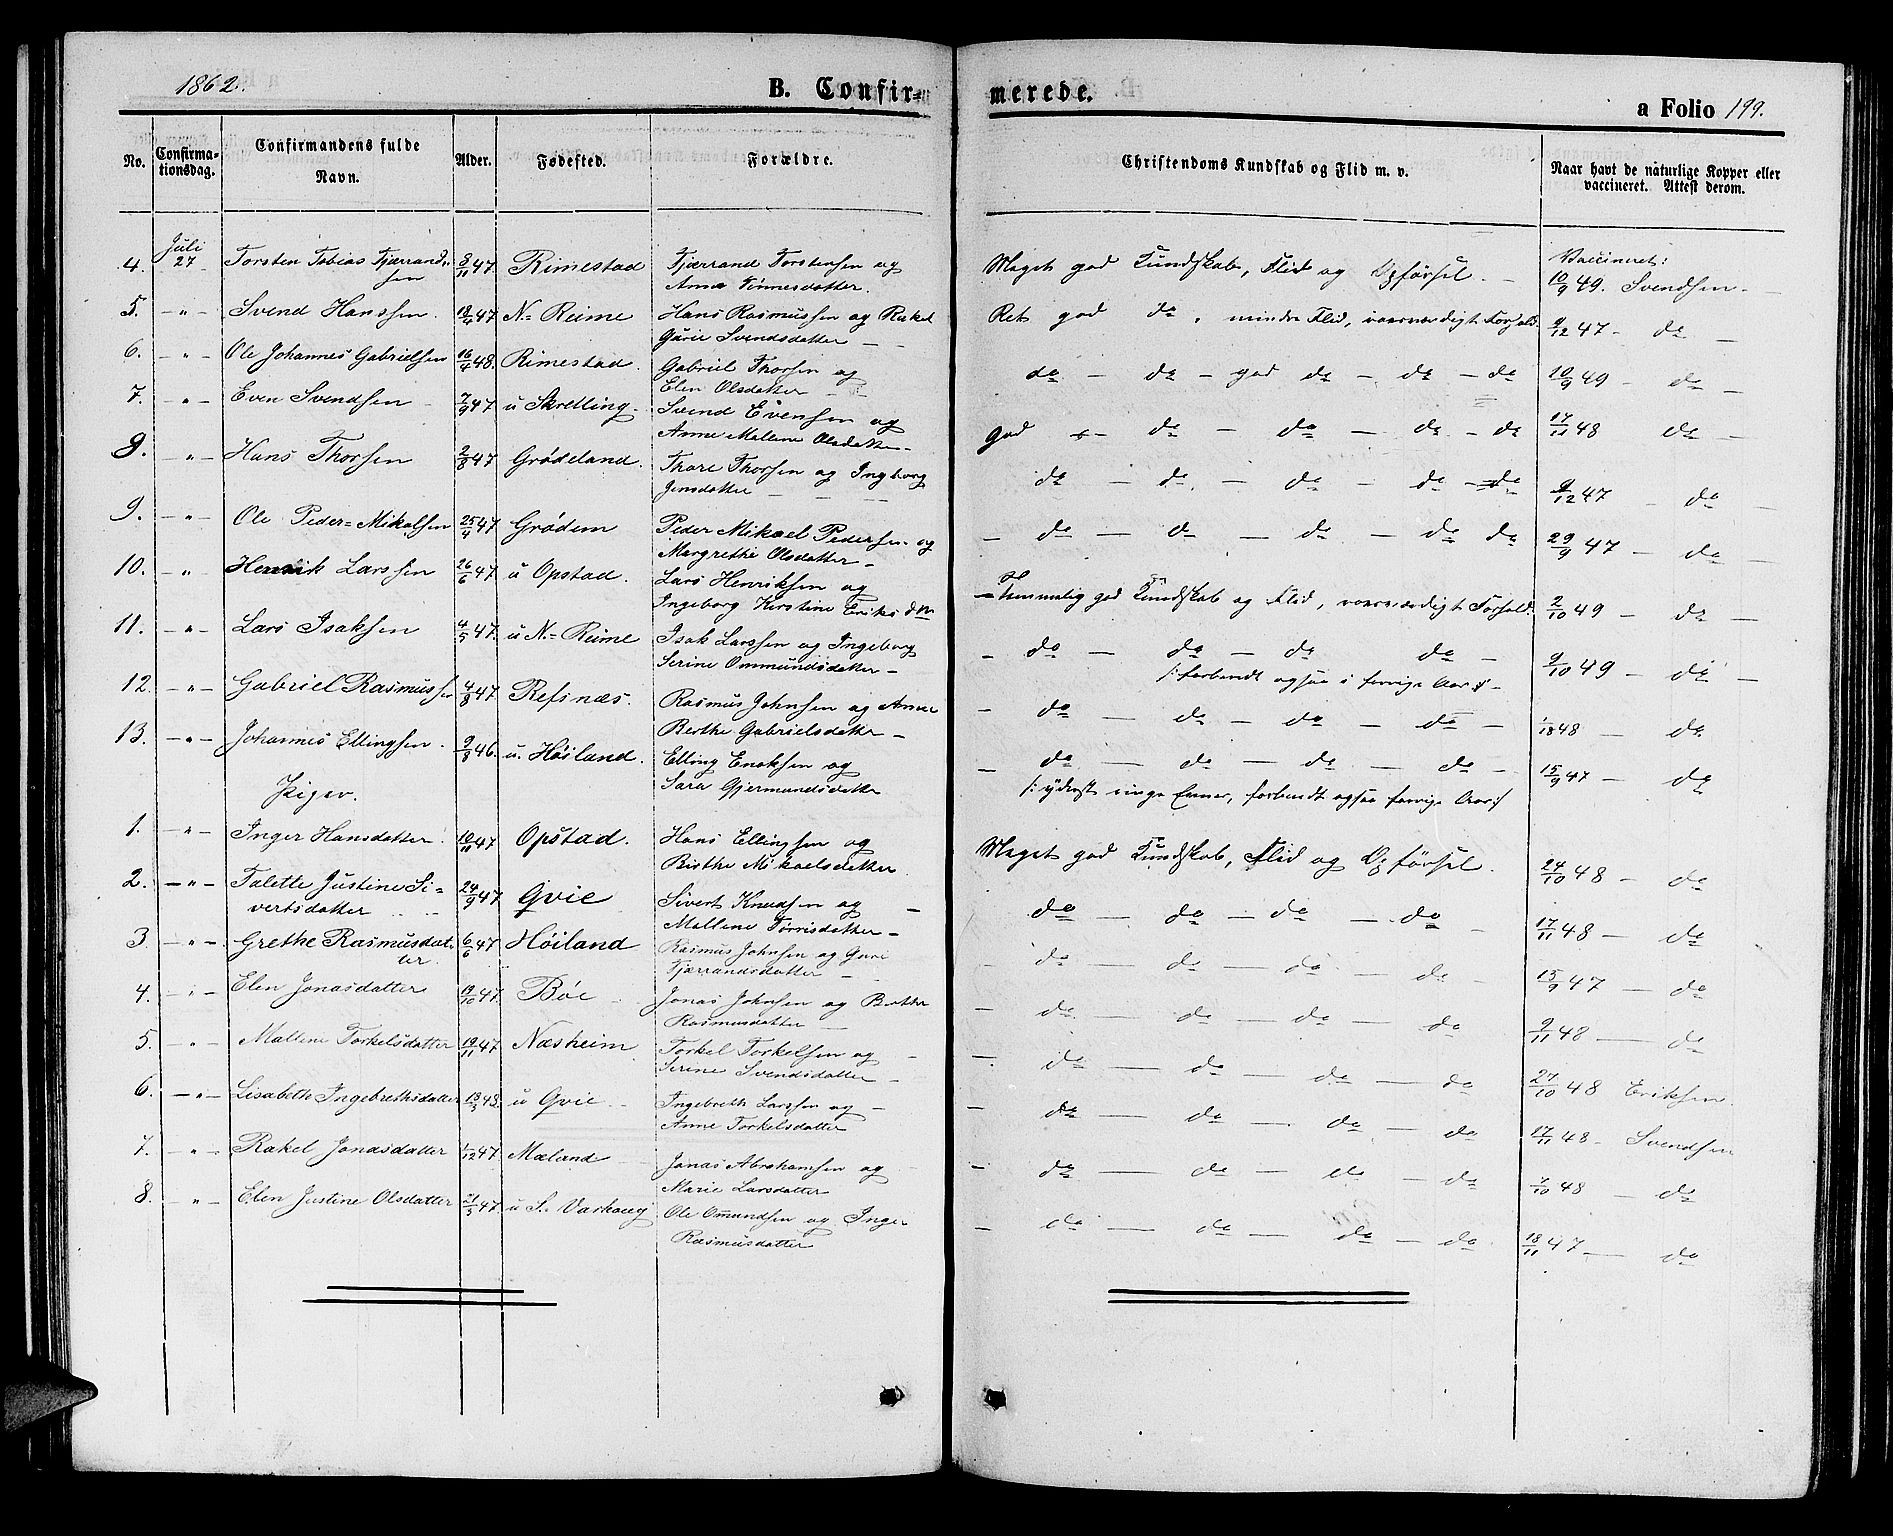 1862.
B. Confir-
merede.
a Folio 199.
No.
Confirma-
tionsdag.
Confirmandens fulde
Navn.
Alder.
Fødested.
Forældre.
Christendoms Kundskab og Flid m. v.
Naar havt de naturlige Kopper eller
vaccineret. Attest derom.
4. Juli 27 Torsten Tobias Tjærand-
sen 8/11 47. Rimestad Tjærrand Torstensen og
Anna Tønnesdatter. Meget god Kundskab, Flid og Opførsel. - Vaccineret:
10/9 49. Svendsen -
5. - " - Svend Hanssen. 18/4 47 N. Reime Hans Rasmussen og Rakel
Gurie Svendsdatter - - Ret god do, mindre Flid, roesværdigt Forhold. 9/12 47 - do -
6. - " - Ole Johannes Gabrielsen 16/4 48. Rimestad. Gabriel Thorsen og
Elen Olsdatter - do - do - god do - do - do 10/9 49 - do -
7. " - Even Svendsen - 7/9 47 u Skretling. Svend Evensen og
Anne Mallene Olsdatter - god - do - do - do - do 17/11 48 do -
8. " - Hans Thorsen 2/8 47 Grødeland. Thore Thorsen og Ingborg
Jensdatter - - - do - do - do - do - do 9/12 47 - do -
9. - " - Ole Peder=Mikalsen 25/4 47 Grødem Peder Mikael Pedersen og
Margrethe Olsdatter - - do - do - do - do do 29/9 47 - do -
10. " - Henrik Larssen 26/6 47 u Opstad. Lars Henriksen og
Ingeborg Kirstine Eriksdtr - Temmelig god Kundskab og Flid, roesværdigt Forhold. 2/10 49 - do -
11. - " - Lars Isaksen 4/5 47. u N.= Reime Isak Larssen og Ingeborg
Serine Ommundsdatter - - do - do - do do -
9/10 49 - do -
12. - " - Gabriel Rasmussen 4/8 47. Refsnæs. Rasmus Johnsen og Anne
Berthe Gabrielsdatter - - do - do - do - do - 48 - do.
13. - " - Johannes Ellingsen. 9/8 46. u. Høiland. Elling Enoksen og
Sara Gjermundsdatter - do - do - do - do - 15/9 47 - do
Piger.
1. - " - Inger Hansdatter. 10/11 47 Opstad. Hans Ellingsen og
Birthe Mikaelsdatter. Meget god Kundskab, Flid og Opførsel. 24/10 48 - do
2. - " - Talette Justine Si-
vertsdatter 24/9 47 Qvie Sivert Knudsen og -
Mallene Tørrisdatter - do - do - do - do - 17/11 48 - do
3 - " - Grethe Rasmusdat-
ter. 6/6 47 Høiland Rasmus Johnsen og Guri
Tjærrandsdatter - - do - do - do - do - 15/9 47 - do
4. - " - Elen Jonasdatter 19/10 47. Bøe Jonas Johnsen og Berthe
Rasmusdatter - - do - do - do - do 9/11 48 - do
5. - " - Mallene Torkelsdatter 19/11 47 Næsheim Torkel Torkelsen og -
Serine Svendsdatter - - do - do - do - do 27/10 48 Eriksen.
6. - " - Lisabeth Ingebrethsdatter 13/3 48. u Qvie - Ingebreth Larssen og -
Anne Torkelsdatter - do - do - do - do 17/11 48 - Svendsen
7. - " - Rakel Jonasdatter 1/12 47 Mæland Jonas Abrahamsen og
Marie Larsdatter - do - do - do - do 7/10 48 - do
8. - " - Elen Justine Olsdatter 21/3 47 u S. Varhoug Ole Omundsen og Inger
Rasmusdatter - do - do - do - do 18/11 47 - do